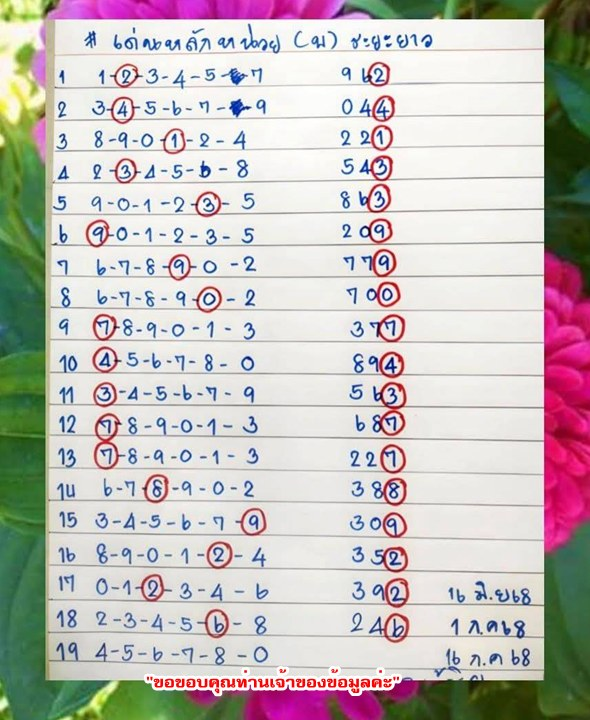 # เด่นหลักหน่วย (บ) ระยะยาว
1 1-2-3-4-5-7 962
2 3-4-5-6-7-9 044
3 8-9-0-1-2-4 221
4 2-3-4-5-6-8 543
5 9-0-1-2-3-5 863
6 9-0-1-2-3-5 209
7 6-7-8-9-0-2 779
8 6-7-8-9-0-2 700
9 7-8-9-0-1-3 377
10 4-5-6-7-8-0 894
11 3-4-5-6-7-9 563
12 7-8-9-0-1-3 687
13 7-8-9-0-1-3 227
14 6-7-8-9-0-2 388
15 3-4-5-6-7-9 309
16 8-9-0-1-2-4 352
17 0-1-2-3-4-6 392 16 มิ.ย 68
18 2-3-4-5-6-8 246 1 ก.ค 68
19 4-5-6-7-8-0 16 ก.ค 68
"ขอขอบคุณท่านเจ้าของข้อมูลค่ะ"